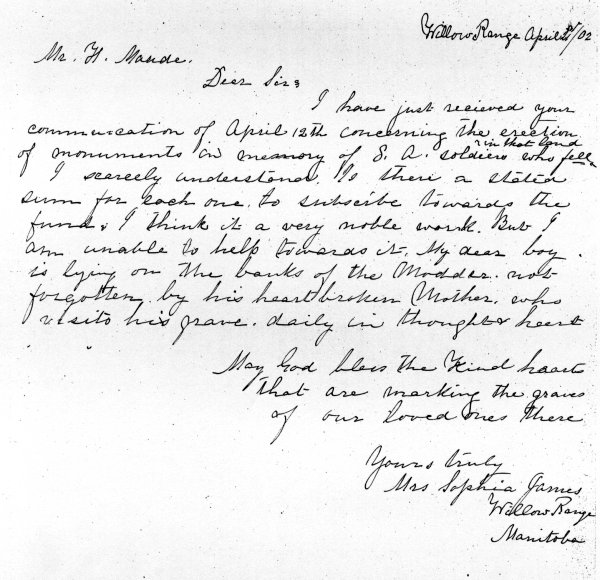 Willow Range April 21/02
Mr. H. Maude.
Dear Sir;
I have just recieved your
communication of April 12th concerning the erection
of monuments in memory of S. A. soldiers who fell in that land
I scarcely understand. Is there a stated
sum for each one. to subscibe towards the
fund; I think it a very noble work. But I
am unable to help towards it. My dear boy.
is lying on the banks of the Modder. not
forgotten. by his heartbroken Mother. who
visits his grave. daily in thought & heart
May God bless the Kind hearts
that are marking the graves
of our loved ones there
Yours truly
Mrs Sophia James
Willow Range
Manitoba